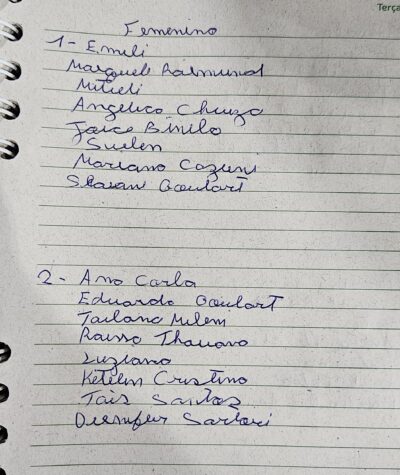 Terça
Femenino
1- Emeli
Marquele Raimund
Mitieli
Angelica Chuza
Joice Binilo
Suelen
Mariana Cazuni
Goulart
2- Ana Carla
Eduarda Goulart
Tailana Milem
Raissa Thauana
Luziana
Ketelin Cristina
Tais Santos
Sartori